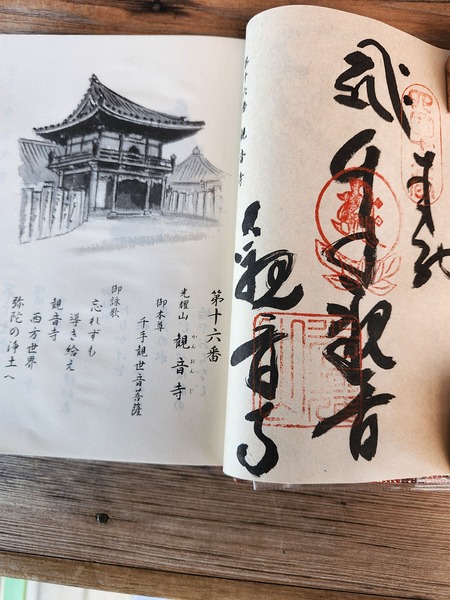 奉納
千手観音
観音寺
第十六番
光耀山 観音寺
かんおんじ
御本尊
千手観世音菩薩
御詠歌
忘れずも
導き給え
観音寺
西方世界
弥陀の浄土へ